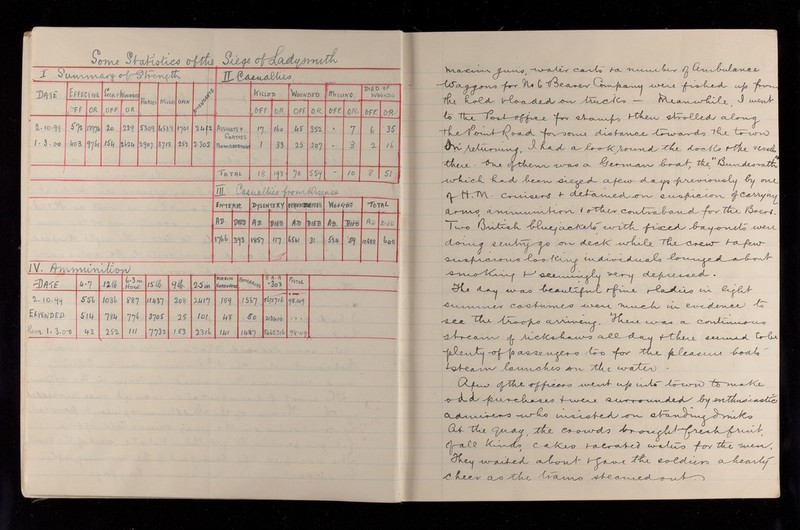 Some Statistics of the Siege of Ladysmith
I Summary of Strength
DATE EFFECTIVE Sick & Wounded Horses Mules Oxen
OFF OR OFF OR
2.10.99 572 20 229 5309 4533 1701 2482
1.3.00 403 154 2624 2907 3713 253 2302
II Casualties
KILLED WOUNDED MISSING DIED OF WOUNDS
OFF O.R. OFF O.R. OFF. O/R. OFF. O.R.
17 160 45 352 - 7 6 35
Bombardment 1 33 25 207 - 3 2 16
TOTAL 18 193 70 559 - 10 8 51
III Casualties from Disease
ENTERIC DYSENTERY WOUNDS TOTAL
AD DIED AD DIED AD DIED AD DIED AD DIED
393 1857 117 31 59 600
IV. Ammunition
DATE 4.7 12 lb 6.3 in How. 15 lb 9 lb 2.5 in PISTOL
2.10.99 556 1036 887 208 2417 189 1567
EXPENDED 514 784 776 3705 25 101 48 80
1.3.00 42 252 111 7732 183 2316 141 1487
maxim guns, water carts & a number of Ambulance
Waggons for No 6 Bearer Company were fished up from
the hold & loaded on trucks — Meanwhile, I went
to the Post office for stamps & then strolled along
the Point Road for some distance towards the town
On returning, I had a look round the docks & the vessels
there. One of them was a German boat, the "Bundesrath"
which had been seized a few days previously by one
of H.M. cruisers & detained on suspicion of carrying
arms ammunition & other contraband for the Boers.
Two British bluejackets with fixed bayonets were
doing sentry go on deck while the crew & a few
suspicious looking individuals lounged about
smoking & seemingly very depressed.
The day was beautiful & fine & ladies in light
summer costumes were much in evidence to
see the troops arriving. There was a continuous
stream of rickshaws all day & there seemed to be
plenty of passengers too for the pleasure boats
& steam launches on the water.
A few of the officers went up into town to make
odd purchases & were surrounded by enthusiastic
admirers who insisted on standing drinks
At the quay, the crowds brought fresh fruit,
of all kinds, cakes & aerated waters for the men.
They waited about & gave the soldiers a hearty
cheer as the trains steamed out